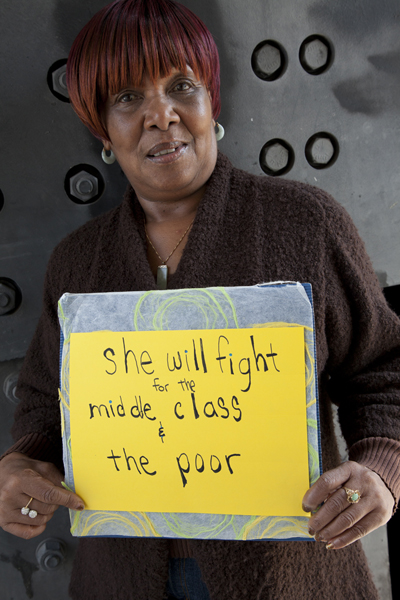 she will fight
for the
middle class
&
the poor